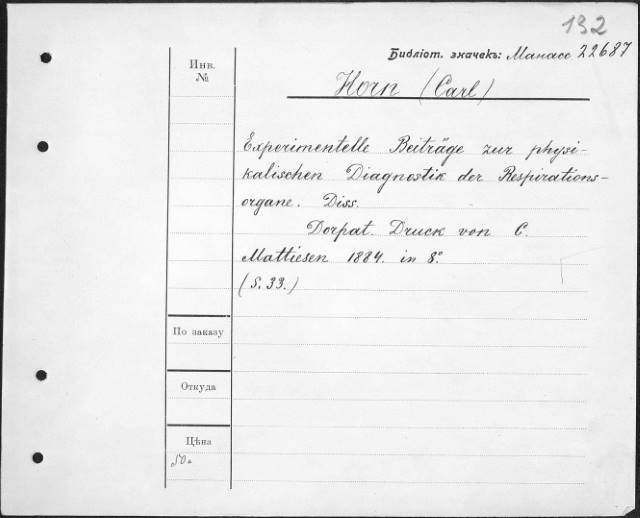 132
Библіот. значекъ: Манасс. 22687
Инв. №
Horn (Carl)
Experimentelle Beiträge zur physi-
kalischen Diagnostik der Respirations-
organe. Diss.
Dorpat. Druck von C.
Mattiesen 1884. in 8°
(S. 33.)
По заказу
Откуда
Цѣна
50.